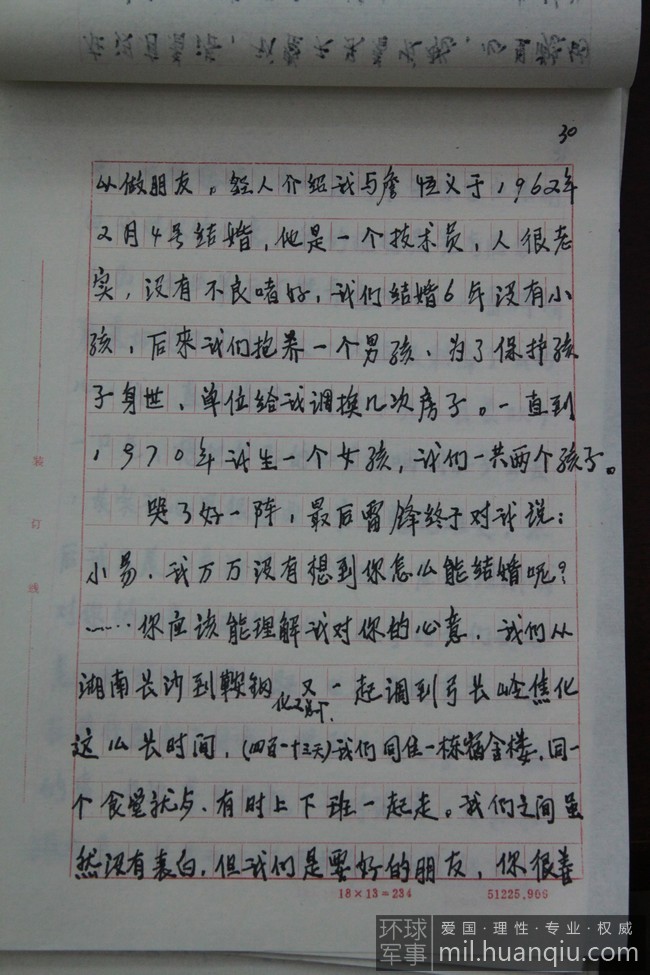 30
以做朋友。经人介绍我与詹恒义于1962年
2月4号结婚,他是一个技术员,人很老
实,没有不良嗜好,我们结婚6年没有小
孩,后来我们抱养一个男孩、为了保护孩
子身世、单位给我调换几次房子。一直到
1970年我生一个女孩,我们一共两个孩子。
哭了好一阵,最后雷锋终于对我说:
小易、我万万没有想到你怎么能结婚呢?
……你应该能理解我对你的心意、我们从
湖南长沙到鞍钢 化工总厂、又一起调到弓长岭焦化
这么长时间,(四百一十三天)我们同住一栋宿舍楼,同一
个食堂就歺、有时上下班一起走。我们之间虽
然没有表白,但我们是要好的朋友,你很善
装
订
线
18×13=234 51225.906
环球军事
爱国·理性·专业·权威
mil.huanqiu.com